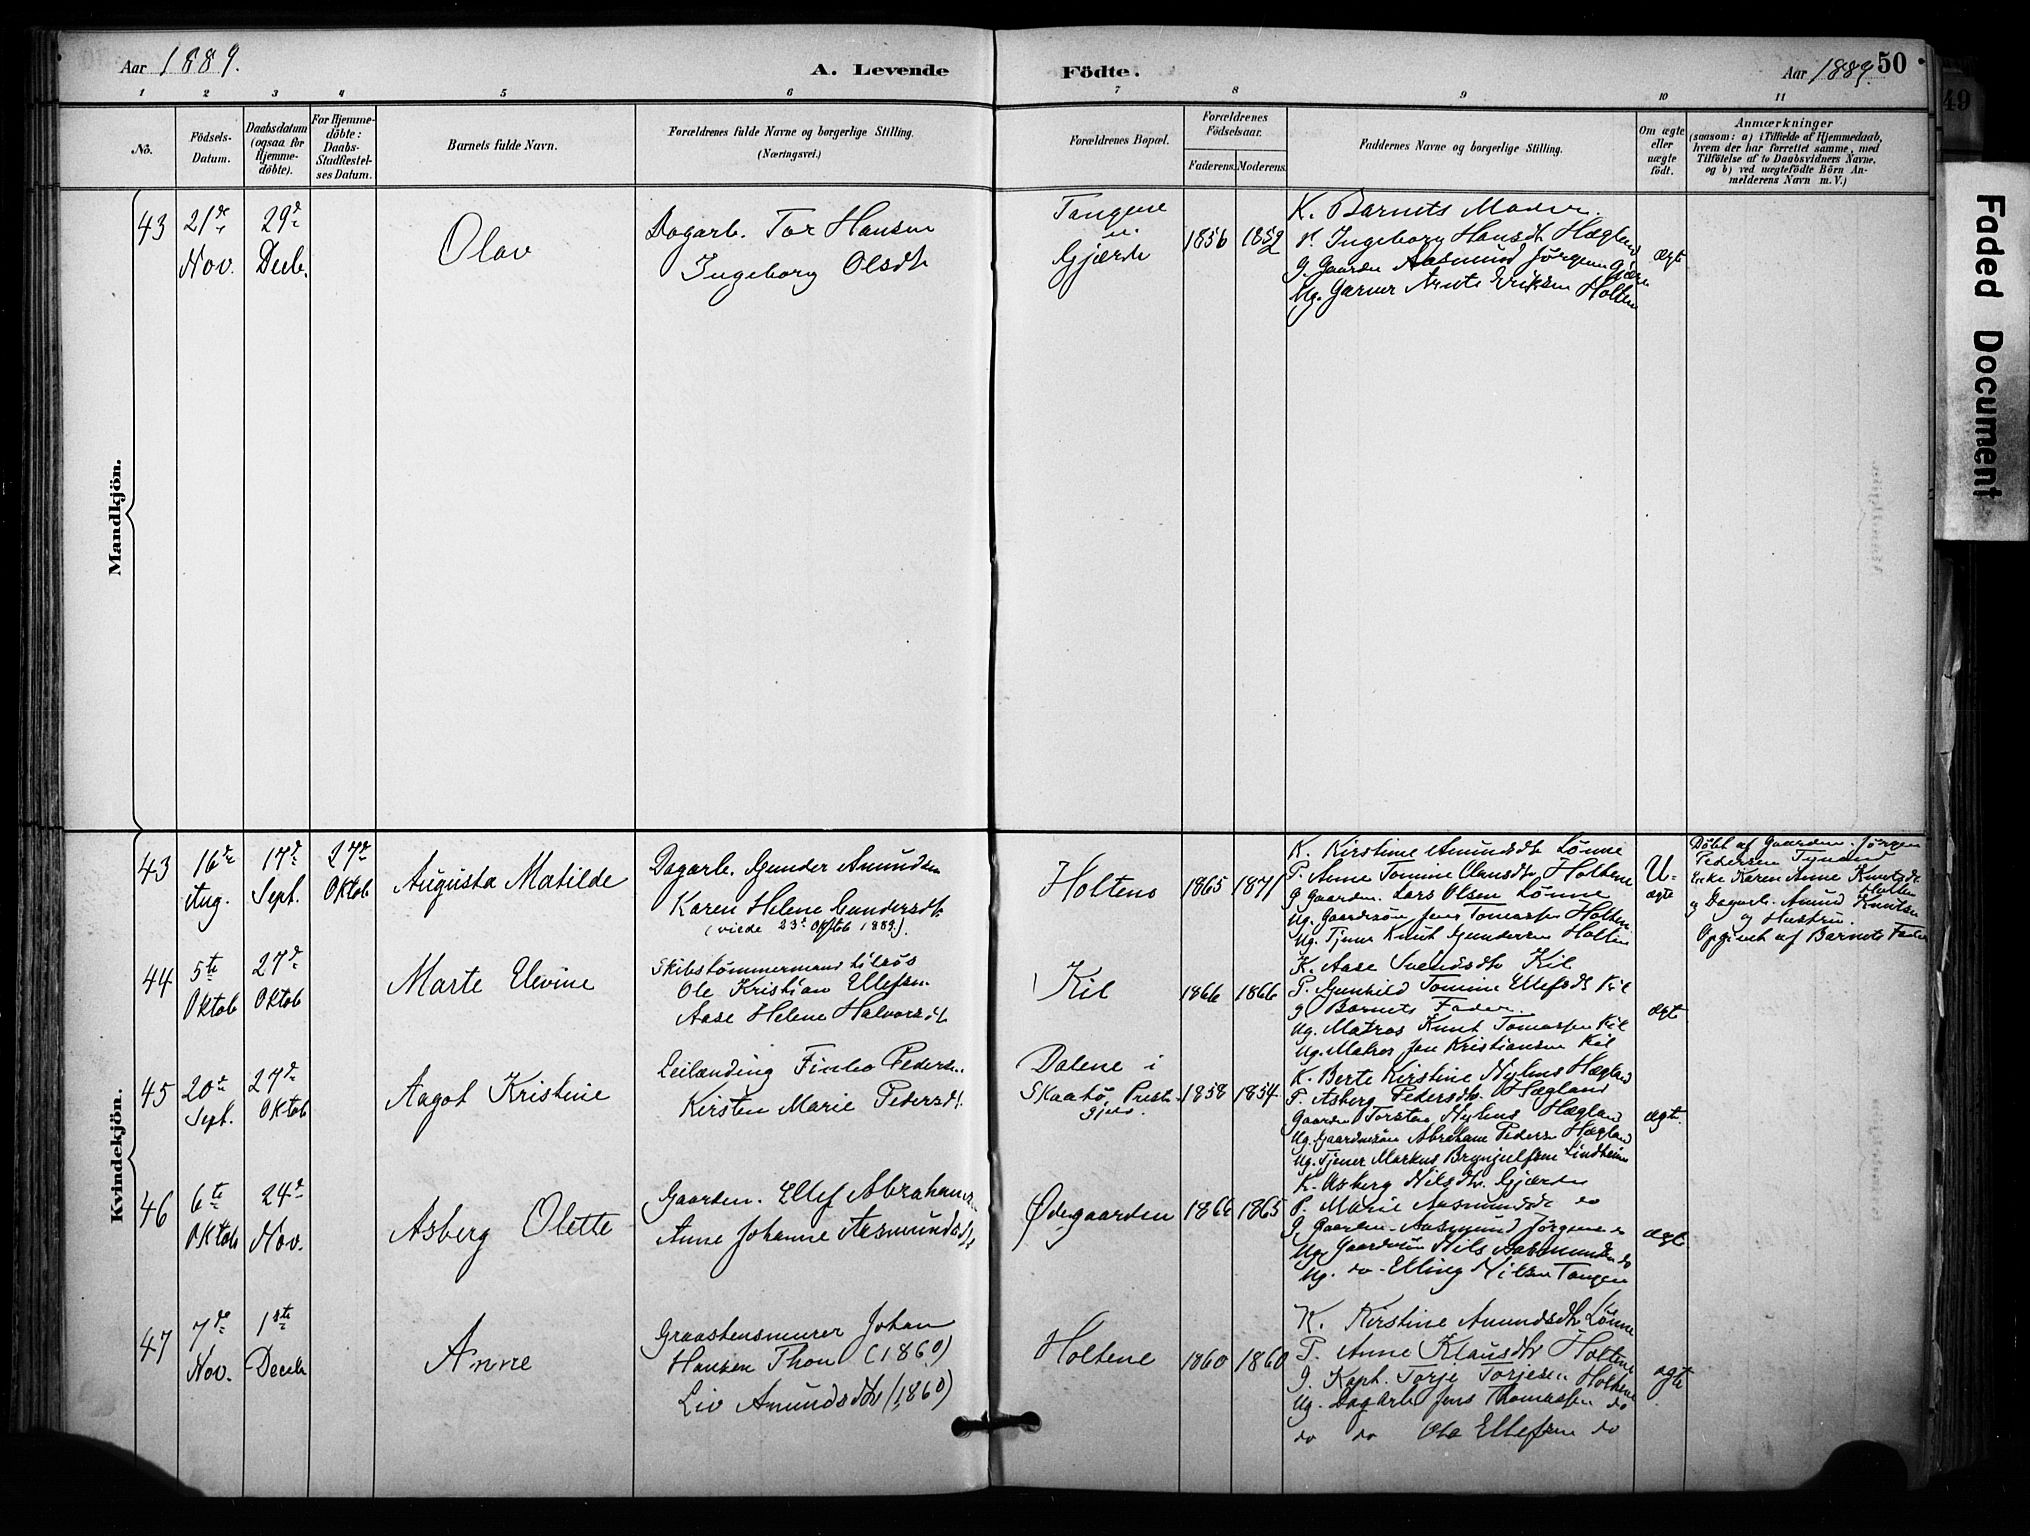 Aar 1889.
A. Levende
Födte.
Aar 1889.
50
49
1 2 3 4 5 6 7 8 9 10 11
No.
Födsels-Datum.
Daabsdatum (ogsaa for Hjemme-döbte).
For Hjemme-döbte: Daabs-Stadfæstel-ses Datum.
Barnets fulde Navn.
Forældrenes fulde Navne og borgerlige Stilling.
(Næringsvei.)
Forældrenes Bopæl.
Forældrenes Födselsaar.
Faderens. Moderens.
Faddernes Navne og borgerlige Stilling.
Om ægte eller uægte födt.
Anmærkninger
(saasom: a) i Tilfælde af Hjemmedaab,
hvem der har forrettet samme, med
Tilföielse af to Daabsvidners Navne,
og b) ved uægtefödte Börn An-
melderens Navn m. V.)
Faded Document
Mandkjön.
43
21de Nov.
29de Decb.
Olav
Dagarb. Tor Hansen
Ingeborg Olsdtr
Tangene
u.
Gjærde
1856
1852
K. Barnets Moder.
P. Ingeborg Hansdtr Hægland
G. Gaardm Aasmund Jørgensen Gjære
Ug. Garver Arnt Eriksen Holten
ægte
Kvindekjön.
43
16de Aug.
17de Sept.
27de Oktob
Augusta Matilde
Dagarb. Gunder Amundsen
Karen Helene Gundersdtr
(viede 23de Oktob 1889).
Holtene
1865
1871
K. Kirstine Amundsdtr Lønne
P. Anne Tomine Clausdtr Holtene
G Gaardm. Lars Olsen Lønne
Ug. Gaardsøn Jens Tomassen Holten
Ug. Tjener Knut Gundersen Holten
U-ægte
Døbt af Gaardm. Jørgen
Pedersen
Enke Karen Anne Knutsdtr
Holten
og Dagarb. Amund Knutsen
og Hustru.
Opgivet af Barnets Fader
44
5te Oktob
27de Oktob
Marte Elevine
Skibstømmermand tilsøs
Ole Kristian Ellefsen
Aase Helene Halvorsdtr
Kil
1866
1866
K. Aase Svendsdtr Kil
P. Gunhild Tomine Ellefsdtr Kil
G Barnets Fader.
Ug. Matros Knut Tomassen Kil
Ug. Matros Jan Kristiansen Kil
ægte
45
20de Sept.
27de Oktob
Aagot Kristine
Leilænding Finko Pedersen.
Kirsten Marie Pedersdtr.
Dalene i
Skaatø Præste-
gjeld.
1858
1854
K. Berte Kirstine Nylens Hægland
P. Asberg Pedersdtr. Hægland
Gaardm Torsten Nylens Hægland
Ug. Gaardmsøn Abraham Pedersen Hægland
Ug. Tjener Markus Brynjulfsen Lindheim
ægte.
46
6te Oktob
24de Nov.
Asberg Olette
Gaardm. Ellef Abrahamsen
Anne Johanne Aasmundsdtr
Ødegaarden
1866
1865
K. Asberg Nilsdtr. Gjærde
P. Marie Aasmundsdtr do
G. Gaardm. Aasmund Jørgensen
Ug. Gaardsøn Nils Aasmundsen do
Ug. do - Elling Nilsen Tangen
ægte.
47
7de Nov.
1ste Decb
Anne
Graastensmurer Johan
Hansen Thon (1860)
Liv Amundsdtr (1860)
Holtene
1860
1860
K. Kirstine Amundsdtr Lønne
P. Anne Klausdtr Holtene
G. Kapt. Torje Torjesen Holtene
Ug. Dagarb Jens Thomassen do
do do Ole Ellefsen do
ægte.